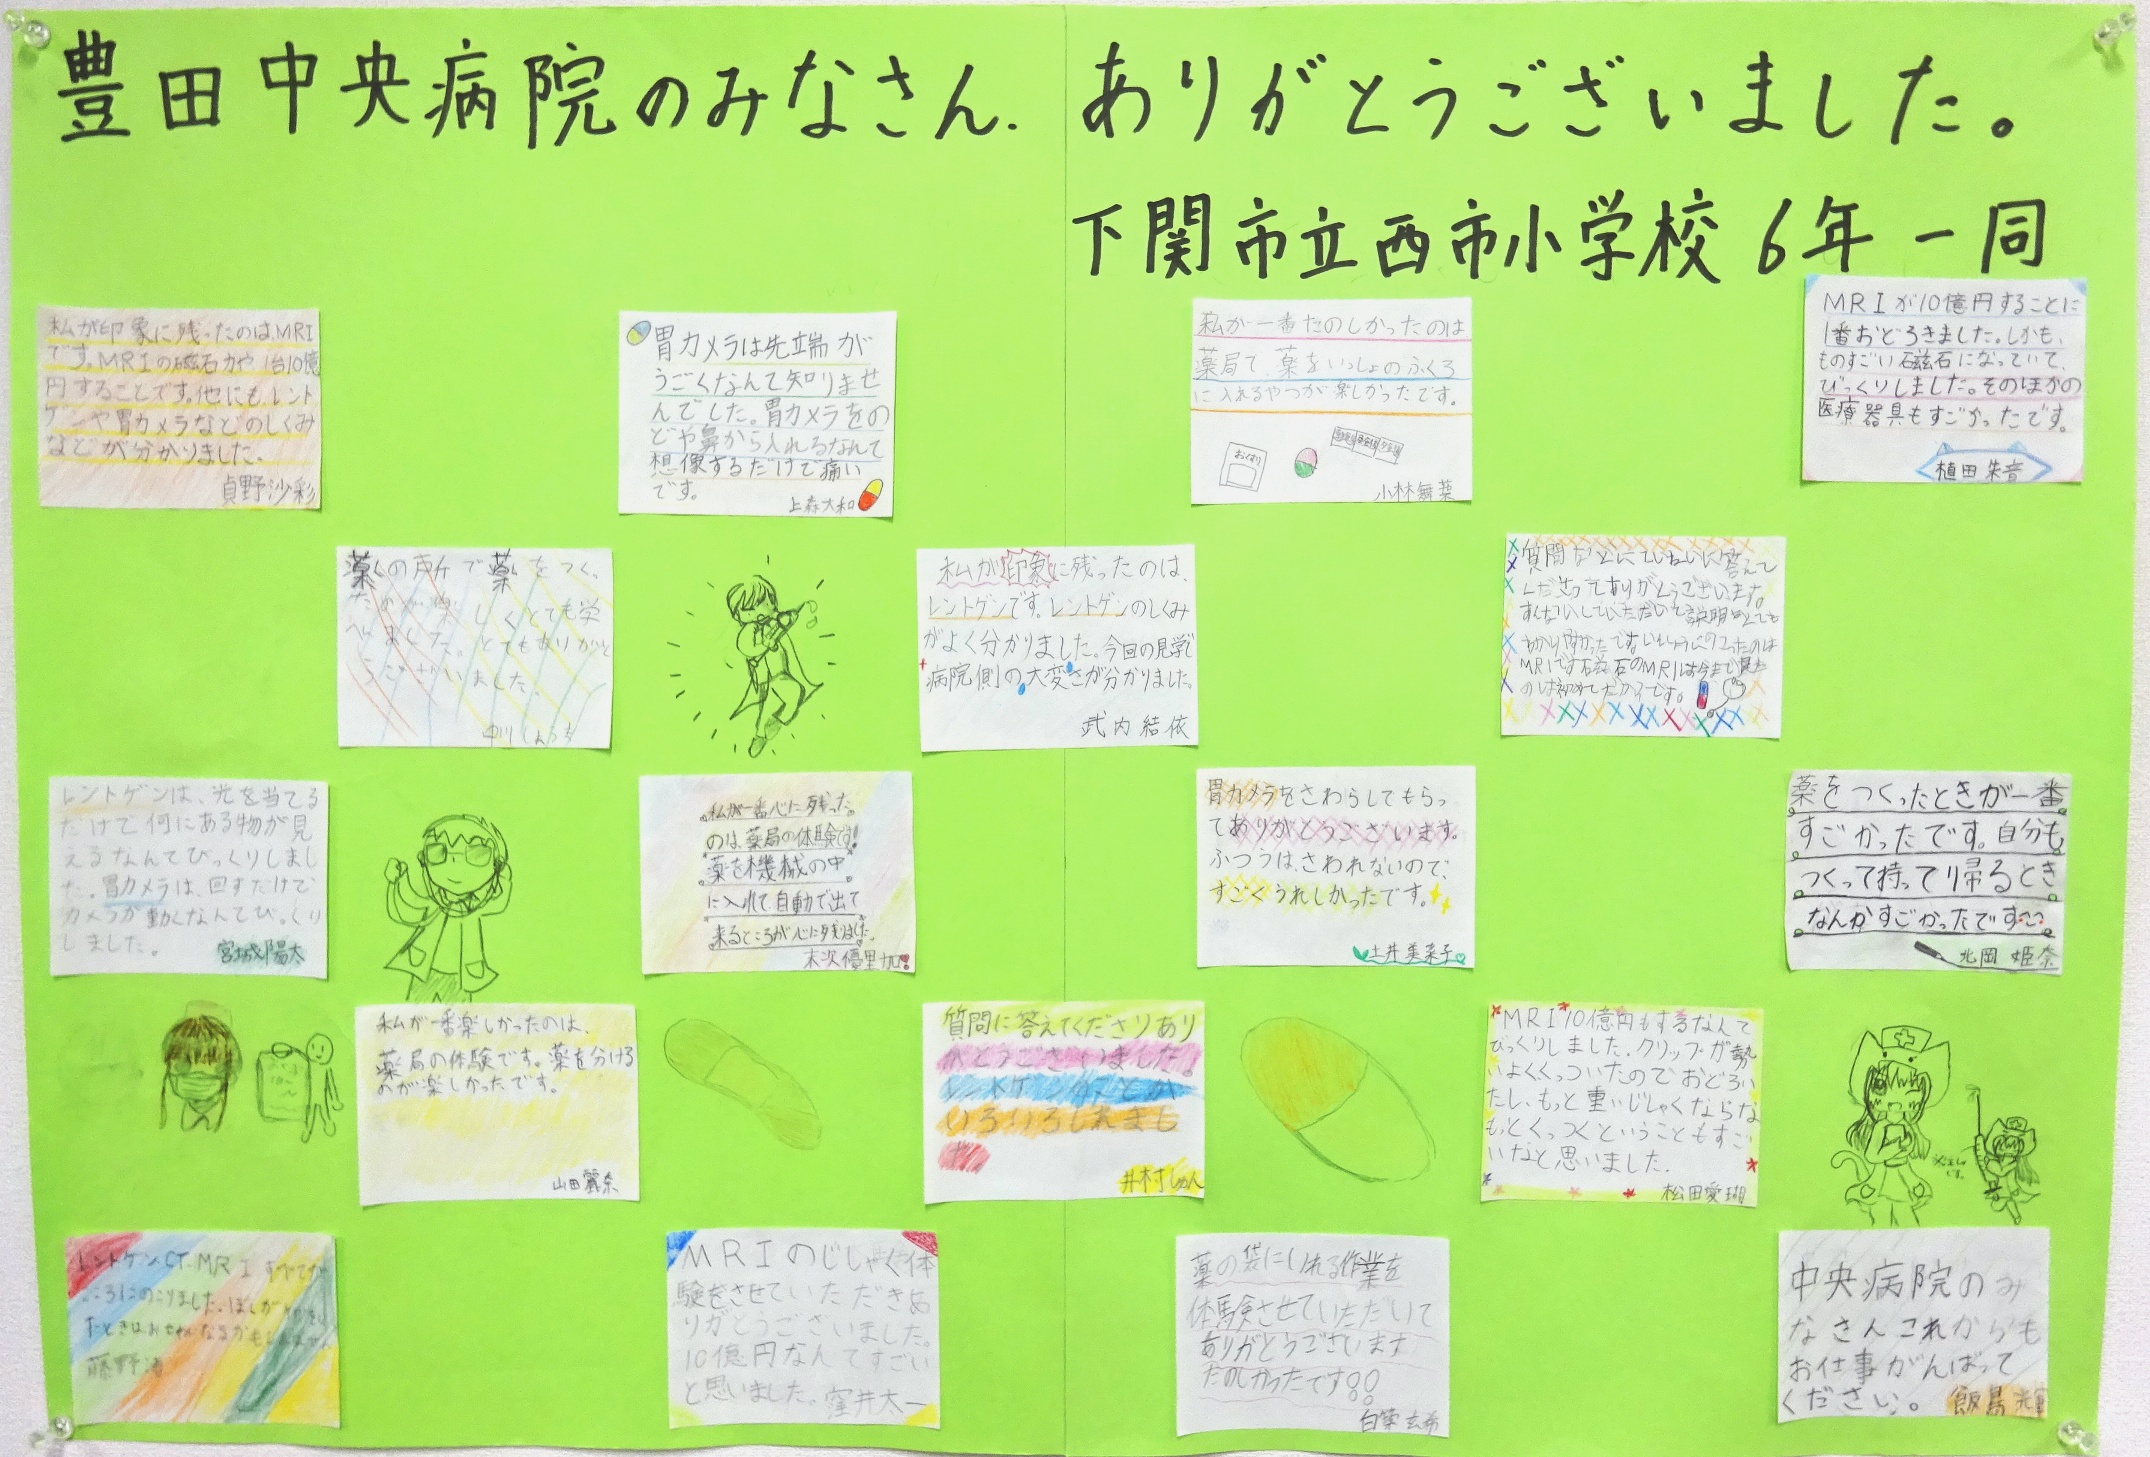 豊田中央病院のみなさん. ありがとうございました。
下関市立西市小学校 6年 一同
私が印象に残ったのは、MRI
です。MRIの磁石力や1台10億
円することです。他にもレント
ゲンや胃カメラなどのしくみ
などが分かりました。
貞野沙彩
胃カメラは先端が
うごくなんて知りませ
んでした。胃カメラをの
どや鼻から入れるなんて
想像するだけで痛い
です。
上森大和
私が一番たのしかったのは
薬局で、薬をいっしょのふくろ
に入れるやつが楽しかったです。
おくすり
小林舞葉
MRIが10億円することに
1番おどろきました。しかも、
ものすごい磁石になっていて、
びっくりしました。そのほかの
医療器具もすごかったです。
植田朱音
薬の所で薬をつく
たのが楽しくとても学
べました。とてもありがと
うございました。
私が印象に残ったのは、
レントゲンです。レントゲンのしくみ
がよく分かりました。今回の見学で
病院側の大変さが分かりました。
武内結依
質問などにていねいに答えて
くださってありがとうございます。
MRIです磁石のMRIは今まで見た
のは初めてだからです。
レントゲンは、光を当てる
だけで何にある物が見
えるなんてびっくりしまし
た。胃カメラは、回すだけで
カメラが動くなんてびっくり
しました。
宮城陽太
私が一番心に残った
のは薬局の体験です!
薬を機械の中
に入れて自動で出て
来るところが心に残りました。
末次優里加
胃カメラをさわらしてもらっ
てありがとうございます。
ふつうは、さわれないので、
すごくうれしかったです。
土井美菜子
薬をつくったときが一番
すごかったです。自分も
つくって持って帰るとき
なんかすごかったです
北岡 姫奈
私が一番楽しかったのは、
薬局の体験です。薬を分ける
のが楽しかったです。
山田麗奈
質問に答えてくださりあり
がとうございました!
レントゲンのことが
いろいろしれまし
た
井村しゅん
MRI10億円もするなんて
びっくりしました。クリップが勢
いよくくっついたのでおどろい
たし、もっと重いじしゃくならな
もっとくっつくということもすご
いなと思いました。
松田愛瑚
レントゲン、CT、MRI すべてが
こころにのこりました。
藤野
MRIのじしゃく体
験をさせていただきあ
りがとうございました。
10億円なんてすごい
と思いました。窪井太一
薬の袋にいれる作業を
体験させていただいて
ありがとうございます
たのしかったです!!
白築玄希
中央病院のみ
なさんこれからも
お仕事がんばって
ください。飯島輝